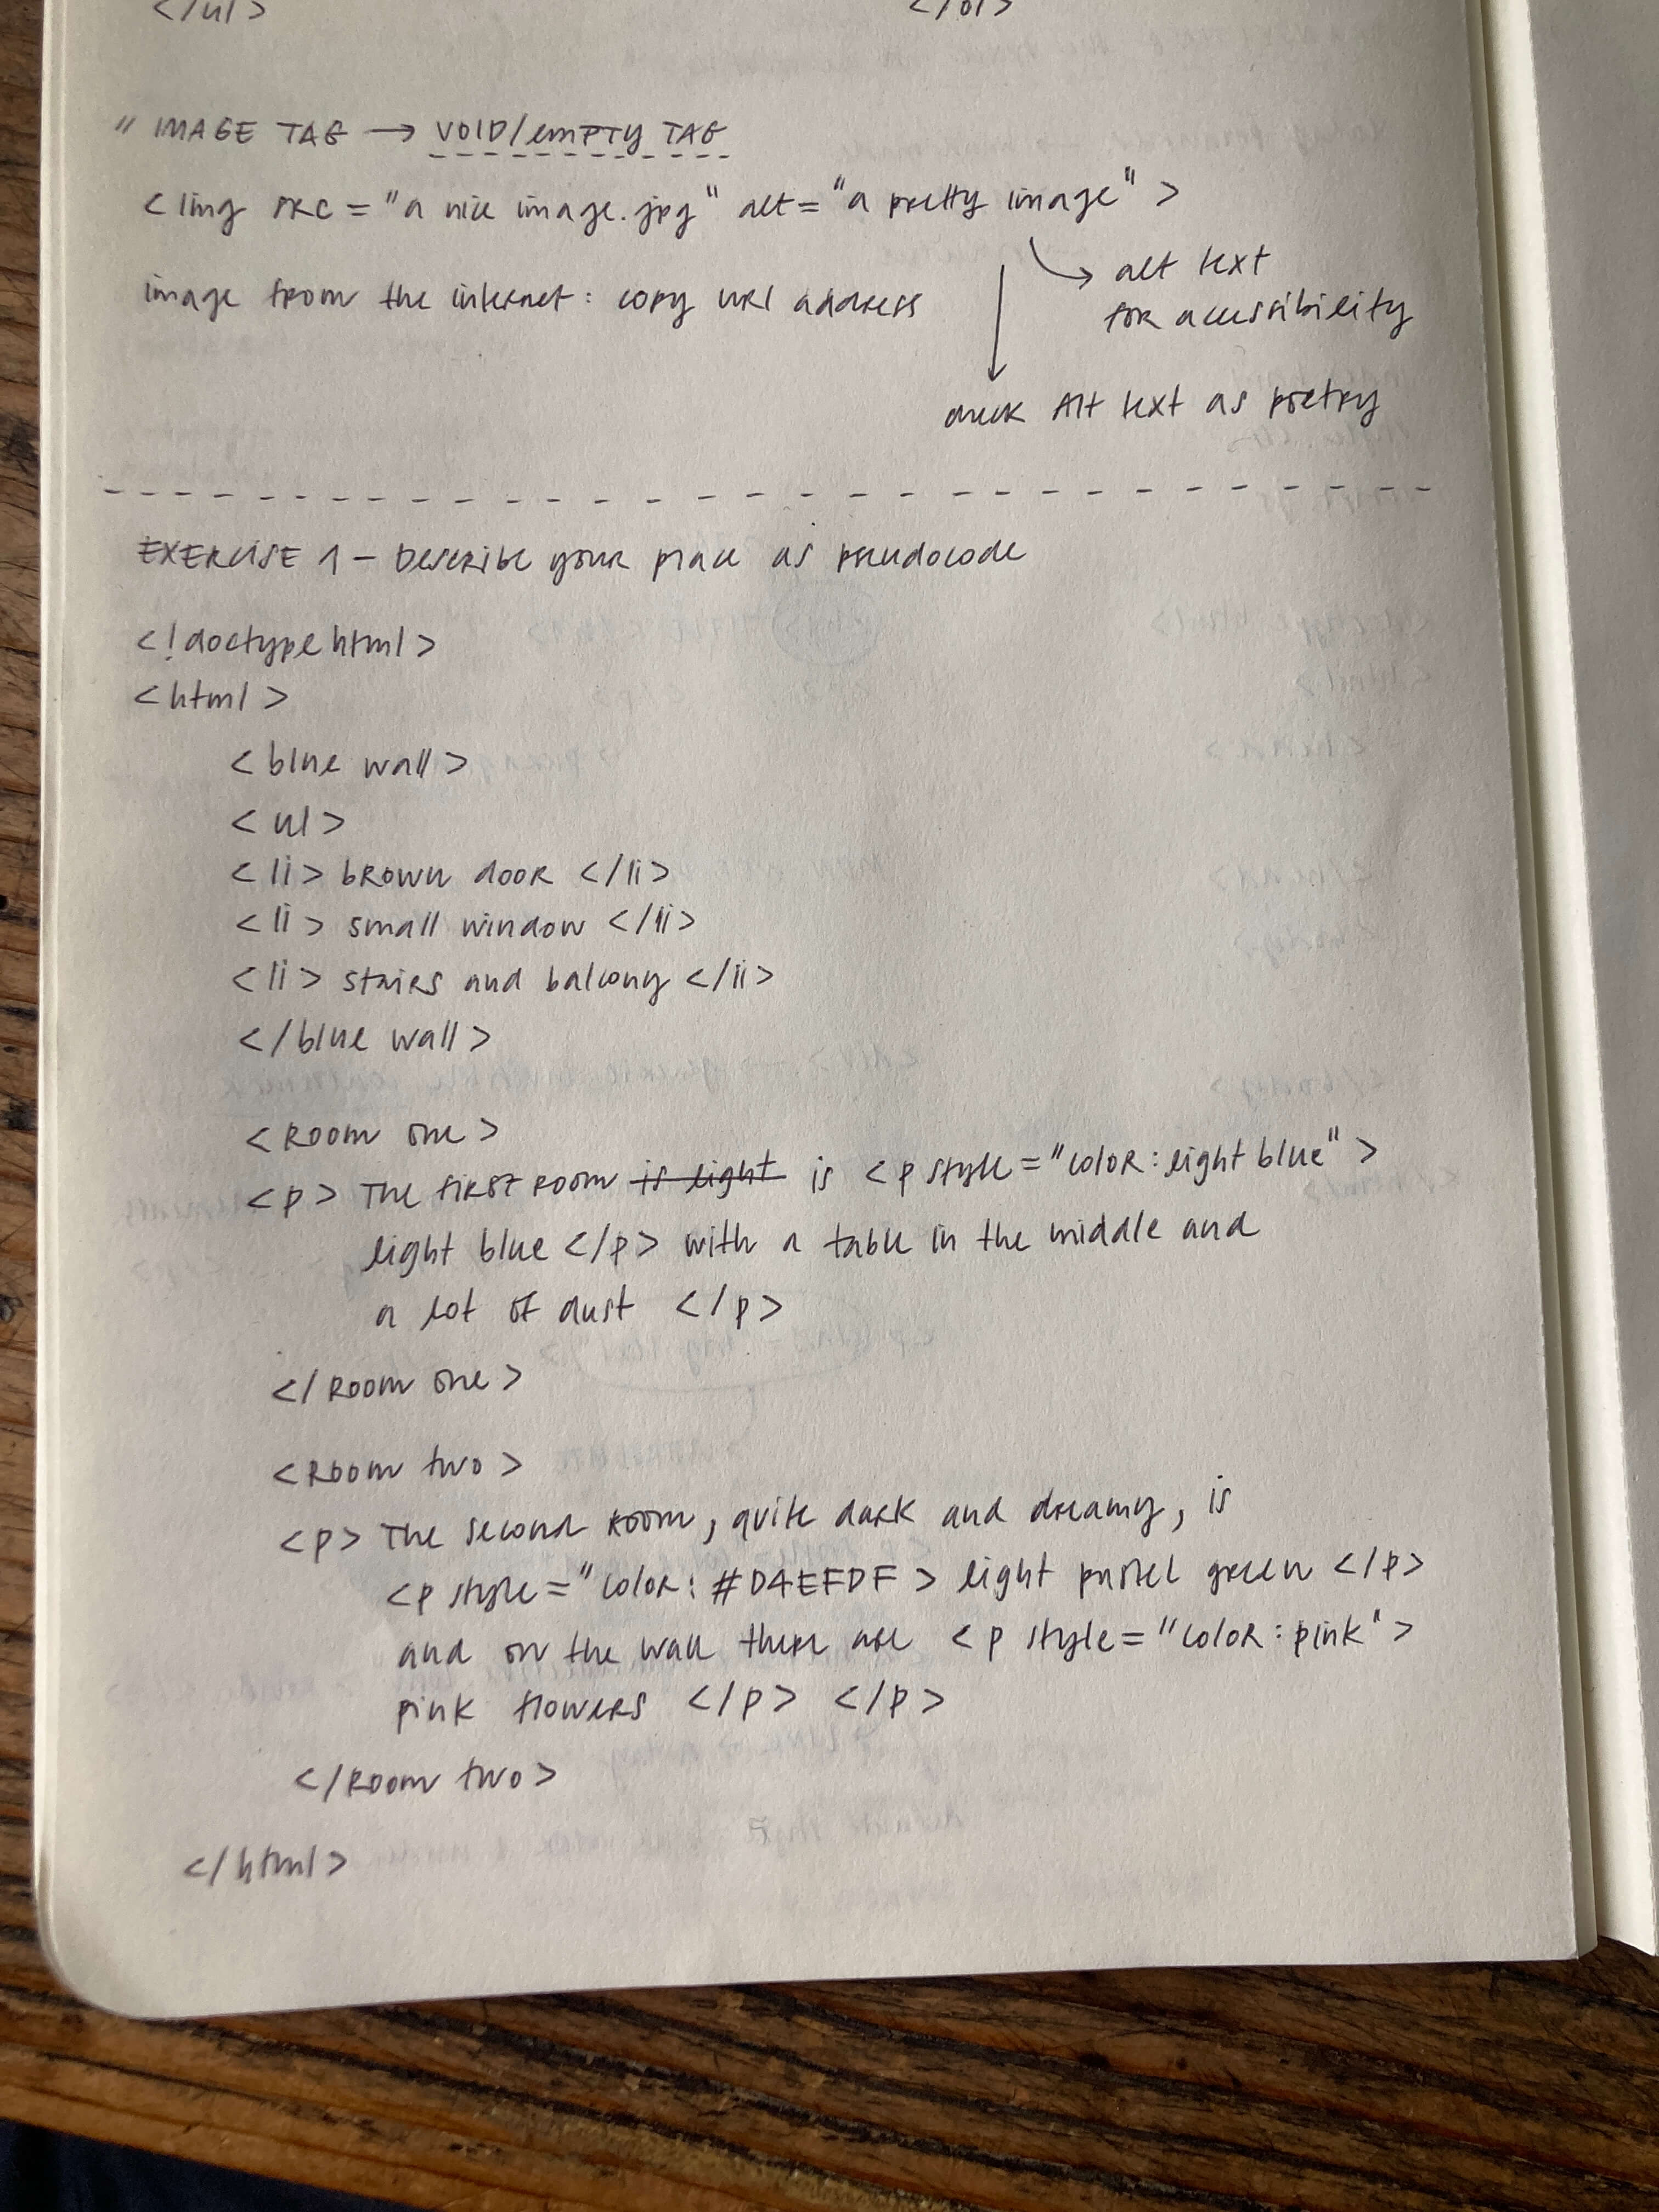 </ul> </ol>
" IMAGE TAG → VOID/EMPTY TAG
<img src = "a nice image.jpg" alt= "a pretty image" >
→ alt text
for accessibility
image from the internet: copy url address
check Alt text as poetry
EXERCISE 1 – Describe your place as pseudocode
<!doctype html>
<html>
<blue wall>
<ul>
<li> brown door </li>
<li> small window </li>
<li> stairs and balcony </li>
</blue wall>
<Room one>
<p> The first room is light is <p style="color: light blue">
light blue </p> with a table in the middle and
a lot of dust </p>
</Room one>
<Room two>
<p> The second room, quite dark and dreamy, is
<p style="color: #D4EFDF > light pastel green </p>
and on the wall there are <p style="color: pink">
pink flowers </p> </p>
</Room two>
</html>